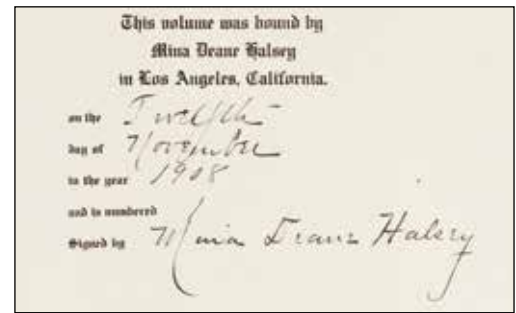 This volume was bound by
Mina Deane Halsey
in Los Angeles, California.
on the Twelfth
day of November
in the year 1908
and is numbered
Signed by Mina Deane Halsey